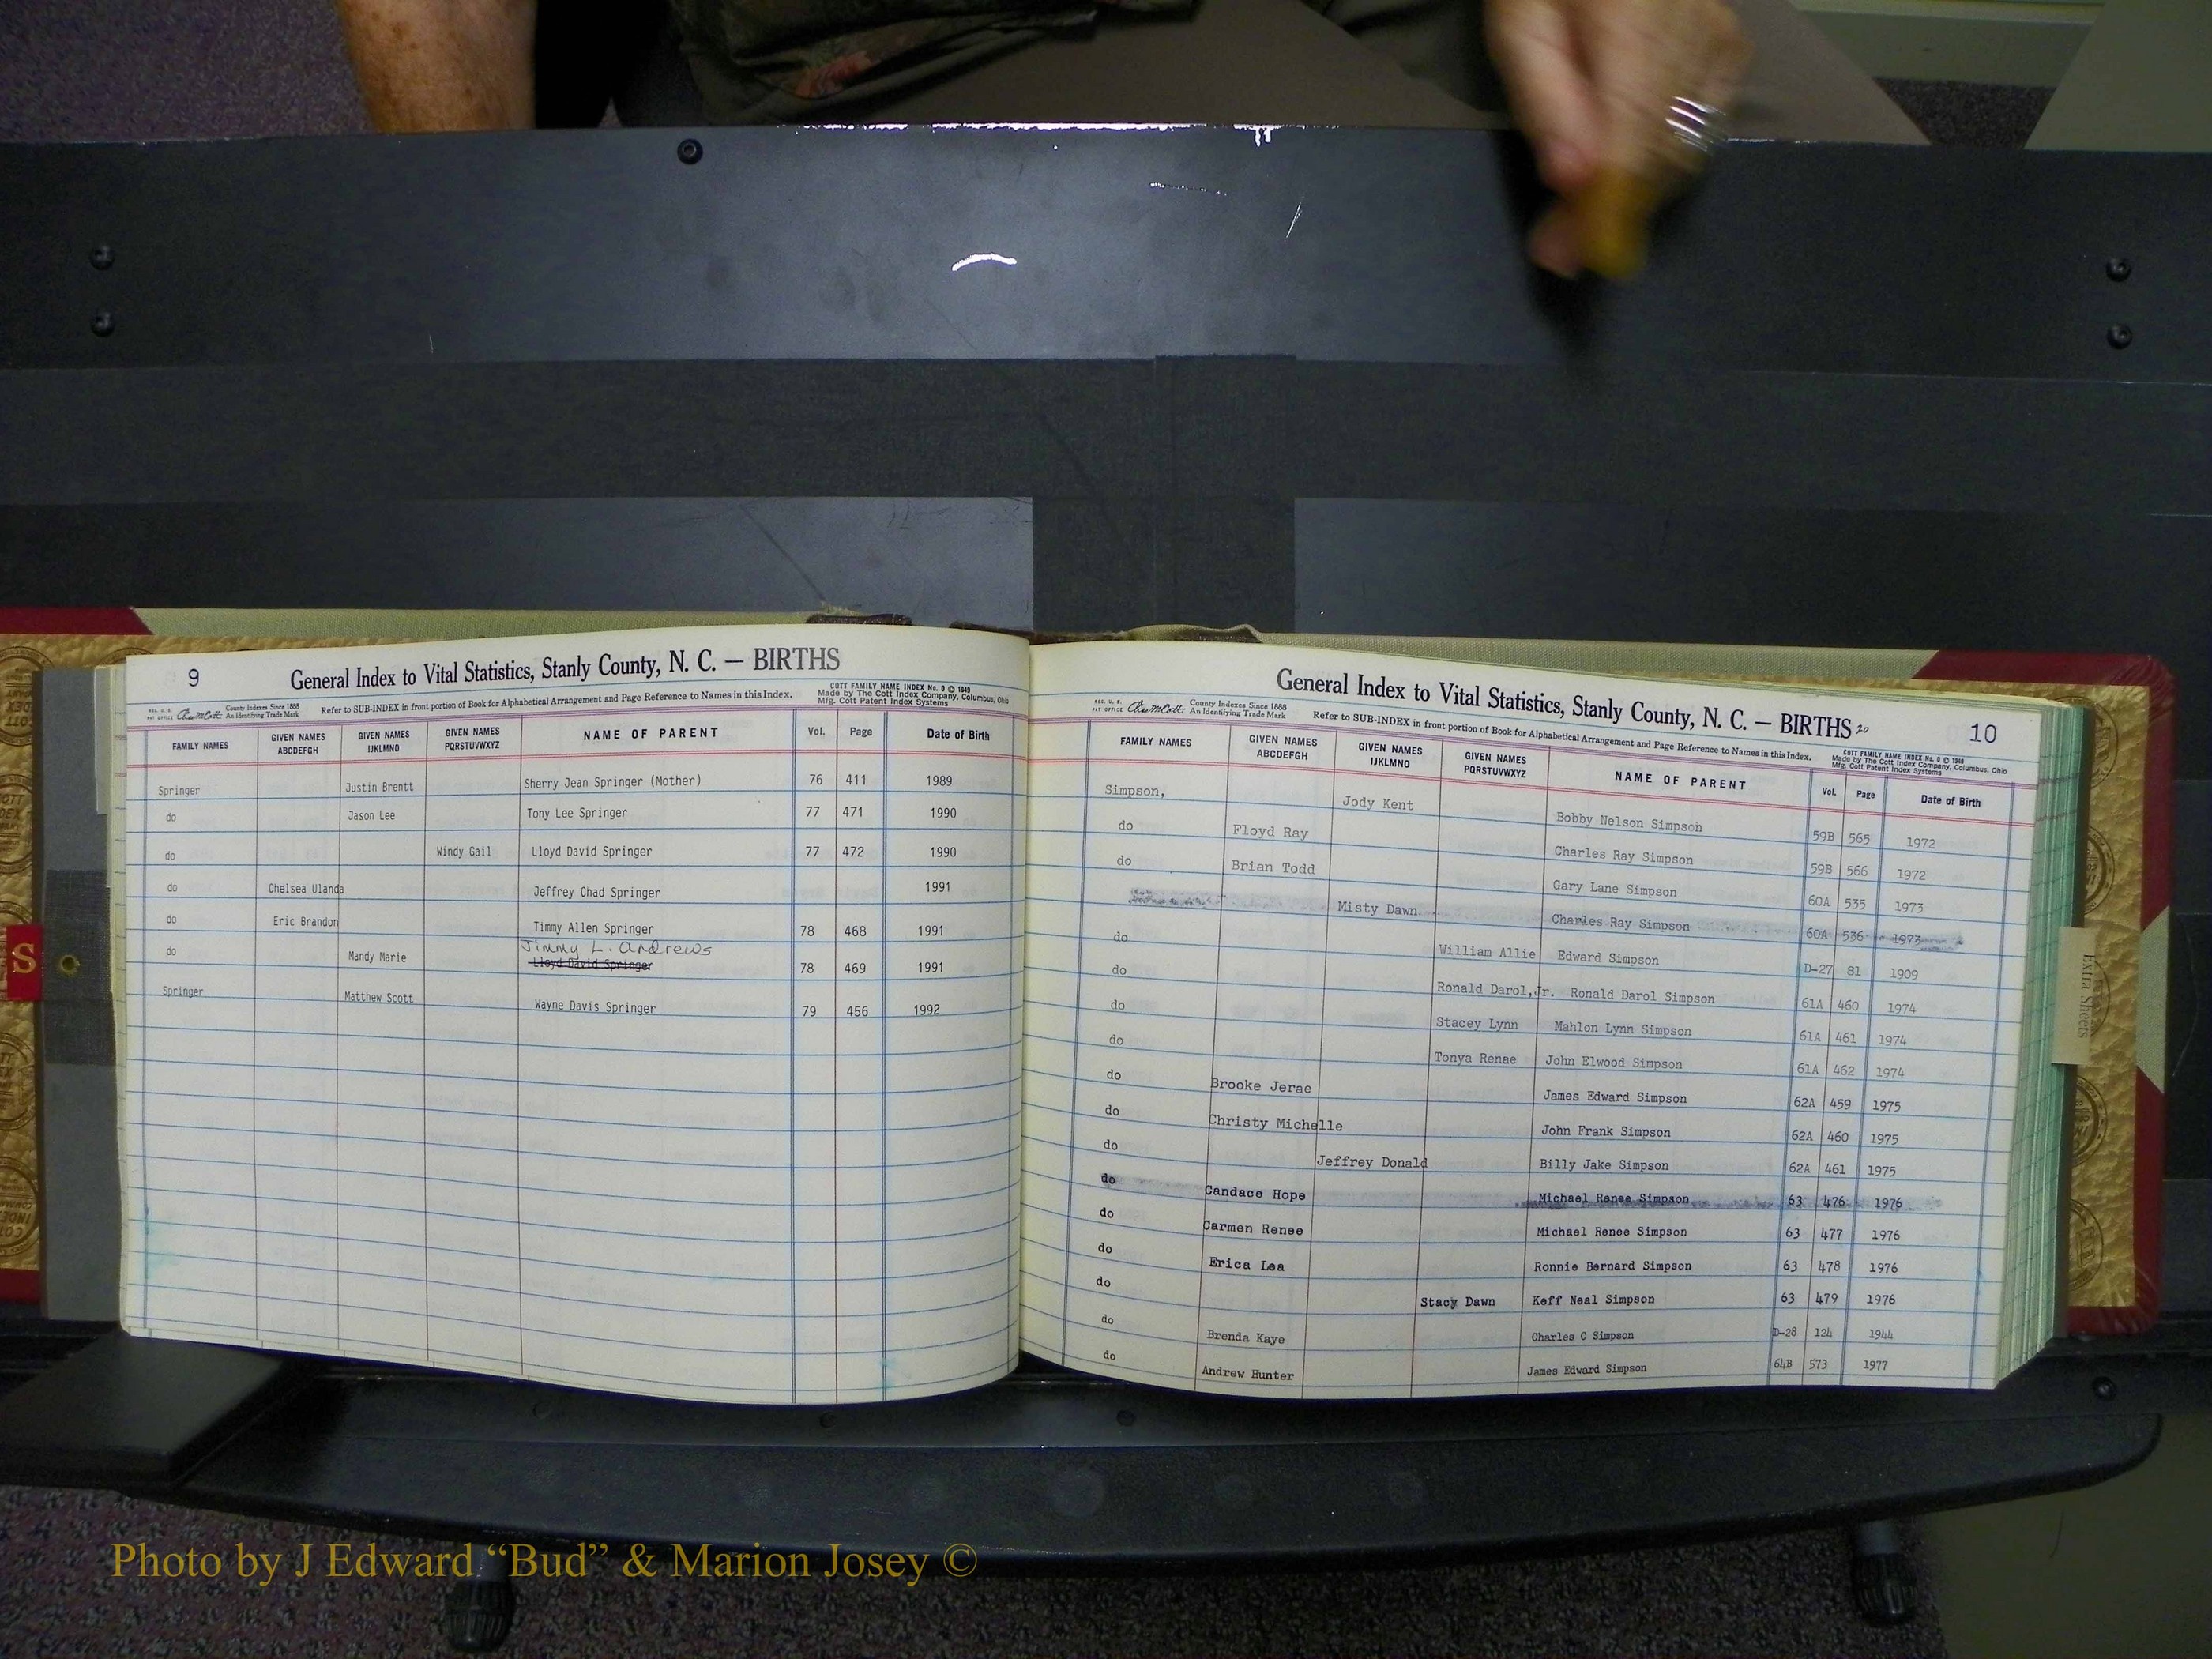 9
General Index to Vital Statistics, Stanly County, N. C. — BIRTHS
REG. U. S. PAT OFFICE County Indexes Since 1888 An Identifying Trade Mark
Refer to SUB-INDEX in front portion of Book for Alphabetical Arrangement and Page Reference to Names in this Index.
COTT FAMILY NAME INDEX No. 9 © 1949
Made by The Cott Index Company, Columbus, Ohio
Mfg. Cott Patent Index Systems
FAMILY NAMES GIVEN NAMES ABCDEFGH GIVEN NAMES IJKLMNO GIVEN NAMES PQRSTUVWXYZ NAME OF PARENT Vol. Page Date of Birth
Springer Justin Brentt Sherry Jean Springer (Mother) 76 411 1989
do Jason Lee Tony Lee Springer 77 471 1990
do Windy Gail Lloyd David Springer 77 472 1990
do Chelsea Ulanda Jeffrey Chad Springer 1991
do Eric Brandon Timmy Allen Springer 78 468 1991
Jimmy L. Andrews
do Mandy Marie Lloyd David Springer 78 469 1991
Springer Matthew Scott Wayne Davis Springer 79 456 1992
General Index to Vital Statistics, Stanly County, N. C. — BIRTHS 20
10
REG. U. S. PAT OFFICE County Indexes Since 1888 An Identifying Trade Mark
Refer to SUB-INDEX in front portion of Book for Alphabetical Arrangement and Page Reference to Names in this Index.
COTT FAMILY NAME INDEX No. 9 © 1949
Made by The Cott Index Company, Columbus, Ohio
Mfg. Cott Patent Index Systems
FAMILY NAMES GIVEN NAMES ABCDEFGH GIVEN NAMES IJKLMNO GIVEN NAMES PQRSTUVWXYZ NAME OF PARENT Vol. Page Date of Birth
Simpson, Jody Kent Bobby Nelson Simpson 59B 565 1972
do Floyd Ray Charles Ray Simpson 59B 566 1972
do Brian Todd Gary Lane Simpson 60A 535 1973
Misty Dawn Charles Ray Simpson 60A 536 1973
do William Allie Edward Simpson D-27 81 1909
do Ronald Darol,Jr. Ronald Darol Simpson 61A 460 1974
do Stacey Lynn Mahlon Lynn Simpson 61A 461 1974
do Tonya Renae John Elwood Simpson 61A 462 1974
do Brooke Jerae James Edward Simpson 62A 459 1975
do Christy Michelle John Frank Simpson 62A 460 1975
do Jeffrey Donald Billy Jake Simpson 62A 461 1975
do Candace Hope Michael Renee Simpson 63 476 1976
do Carmen Renee Michael Renee Simpson 63 477 1976
do Erica Lea Ronnie Bernard Simpson 63 478 1976
do Stacy Dawn Keff Neal Simpson 63 479 1976
do Brenda Kaye Charles C Simpson D-28 124 1944
do Andrew Hunter James Edward Simpson 64B 573 1977
S
Extra Sheets
Photo by J Edward “Bud” & Marion Josey ©